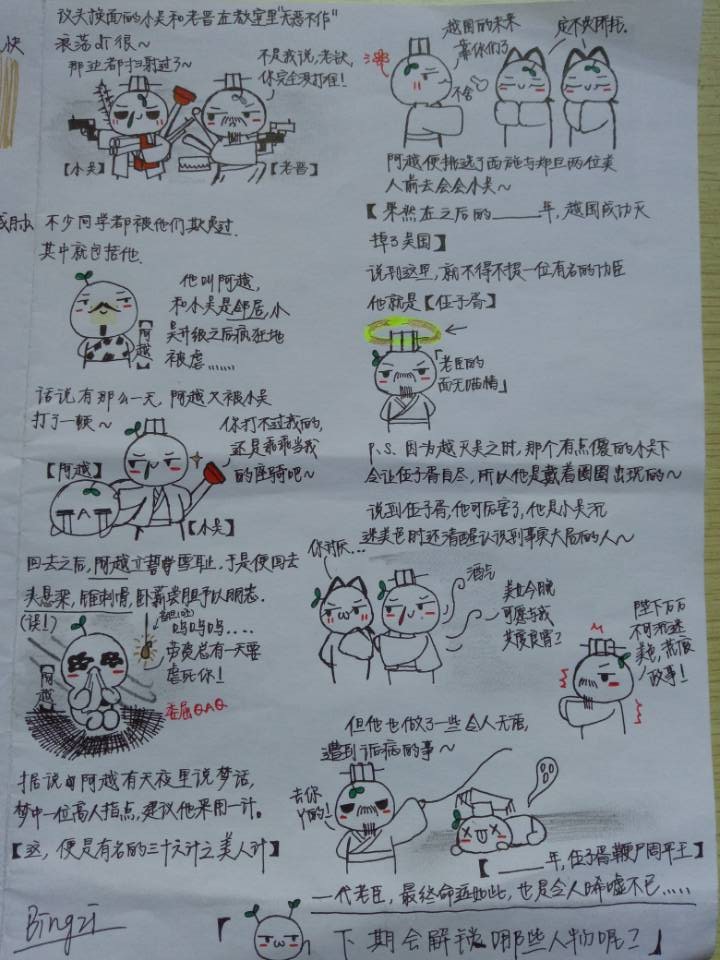 话头接面的小吴和老晋在教室里“无恶不作”
浪荡的很~
那边都扫射过了~
不是我说,老铁,
你完全没打住!
【小吴】
【老晋】
不少同学都被他们欺虐过.
其中就包括他.
他叫阿越,
和小吴是邻居,小
吴升级之后疯狂地
被虐……
【阿越】
话说有那么一天,阿越又被小吴
打了一顿~
你打不过我的,
还是乖乖当我
的座骑吧~
【阿越】
【小吴】
回去之后,阿越立誓雪耻,于是便回去
头悬梁,锥刺骨,卧薪尝胆予以明志.
(误!)
呜呜呜....
劳资总有一天要
虐死你!
委屈QAQ
【阿越】
据说由阿越有天夜里说梦话,
梦中一位高人指点,建议他采用一计。
【这,便是有名的三十六计之美人计】
Bingzi
越国的未来
靠你们了
不舍
定不失所托.
阿越便挑选了西施与郑旦两位美
人前去会会小吴~
【果然在之后的______年,越国成功灭
掉了吴国】
说到这里,就不得不提一位有名的功臣
他就是【伍子胥】
「老臣的
面无喵情」
P.S. 因为越灭吴之时,那个有点傻的小吴下
令让伍子胥自尽,所以他是戴着圈圈出现的~
说到伍子胥,他可厉害了,他是小吴沉
迷美色时还清醒认识到事実大局的人~
你讨厌…
酒气
美女今晚
可愿与我
共度良宵?
陛下万万
不可沉迷
美色,荒废
政事!
但他也做了一些令人无语,
遭到诟病的事~
去你
丫的!
【______年,伍子胥鞭尸周平王】
一代老臣,最终命运如此,也是令人唏嘘不已.....
「下期会解锁哪些人物呢?」